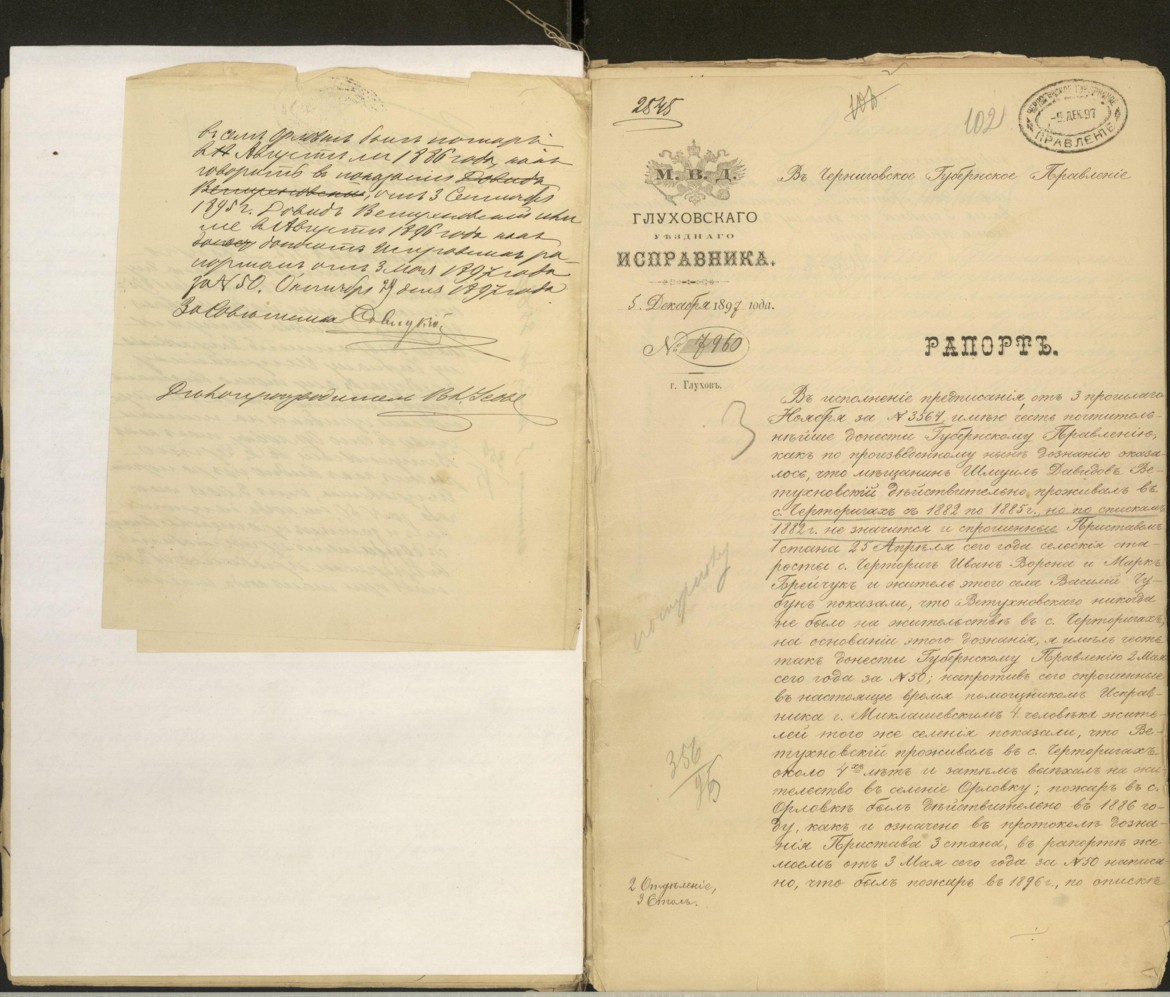 въ самъ фактъ былъ пожаръ
въ Августѣ ли 1886 года, какъ
говоритъ въ показаніи Довидъ
Ветухновскій, отъ 3 Сентября
1895 г. Довидъ Ветухновскій или
же въ Августѣ 1896 года какъ
доноситъ Исправникъ ра-
портомъ отъ 3 Мая 1897 года
за № 50. Октября 24 дня 1897 года
За Совѣтника
Дѣлопроизводитель
2545
106
102
ЧЕРНИГОВСКОЕ ГУБЕРНСКОЕ
-9 ДЕК 97
ПРАВЛЕНІЕ
М. В. Д.
ГЛУХОВСКАГО
УѢЗДНАГО
ИСПРАВНИКА.
5 Декабря 1897 года.
№ 7960
г. Глуховъ.
Въ Черниговское Губернское Правленіе
РАПОРТЪ.
Въ исполненіе предписанія отъ 3 прошлаго
Ноября за № 3564, имѣю честь почтитель-
нѣйше донести Губернскому Правленію,
какъ по произведенному нынѣ дознанію оказа-
лось, что мѣщанинъ Шмуилъ Давидовъ Ве-
тухновскій дѣйствительно проживалъ въ
с. Черторигахъ съ 1882 по 1885 г., но по спискамъ
1882 г. не значится и спрошенные Приставомъ
1 стана 25 Апрѣля сего года сельскія ста-
росты с. Черторигъ Иванъ Ворона и Маркъ
Брейчукъ и житель этого села Василій Чу-
бунъ показали, что Ветухновскаго никогда
не было на жительствѣ въ с. Черторигахъ,
на основаніи этого дознанія, я имѣлъ честь
такъ донести Губернскому Правленію 2 Мая
сего года за № 50; напротивъ сего спрошенные
въ настоящее время помощникомъ Исправ-
ника г. Миклашевскимъ 4 человѣка жите-
лей того же селенія показали, что Ве-
тухновскій проживалъ въ с. Черторигахъ
около 4хъ лѣтъ и затѣмъ выѣхалъ на жи-
тельство въ селеніе Орловку; пожаръ въ с.
Орловкѣ былъ дѣйствительно въ 1886 го-
ду, какъ и означено въ протоколѣ дозна-
нія Пристава 3 стана, въ рапортѣ же
моемъ отъ 3 Мая сего года за № 50 написа-
но, что былъ пожаръ въ 1896 г., по опискѣ
3
356
95
2 Отдѣленіе,
3 Столъ.